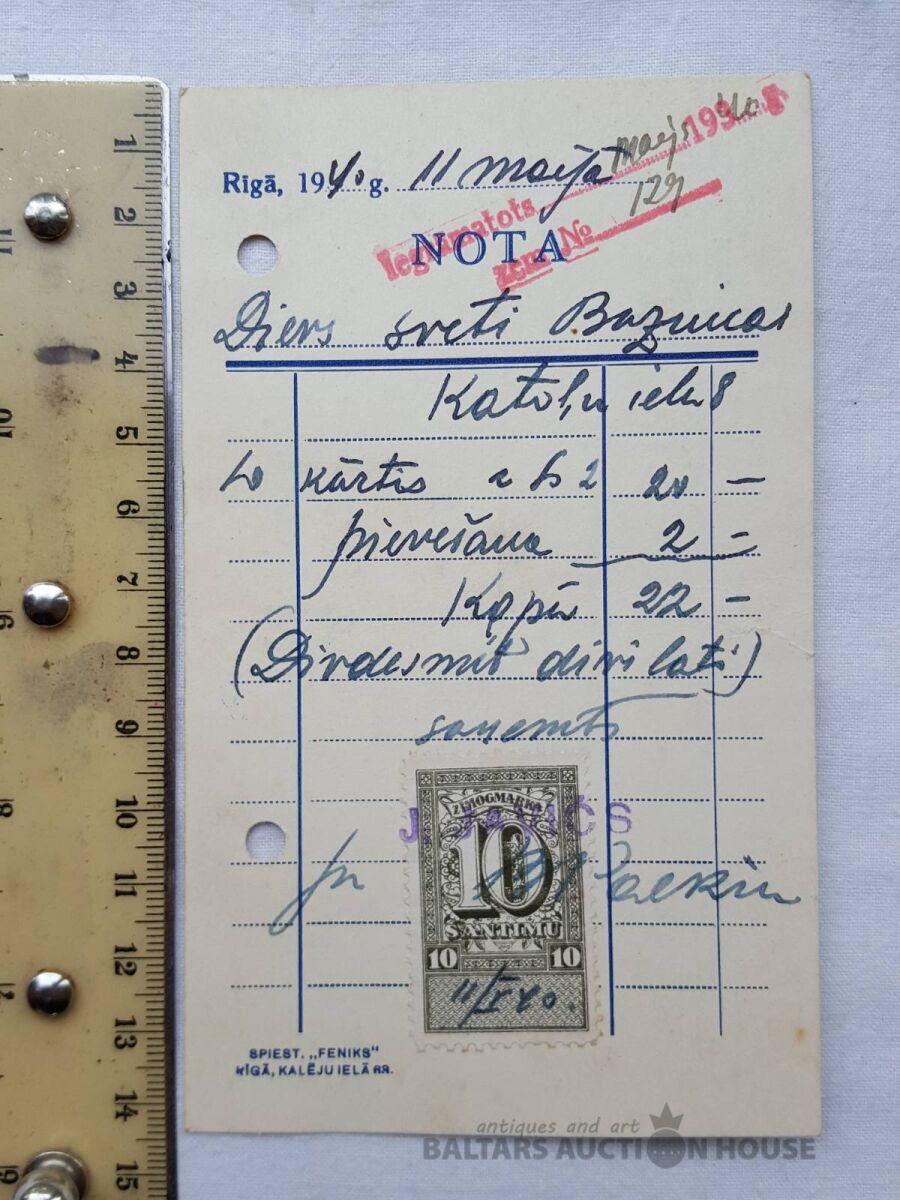 Rīgā, 1940. g. 11 maijā
Iegrāmatots maijs 193 40
zem № 129
NOTA
Dievs sveti Baznicai
Katoļu ielu 8
10 kārtis a Ls 2 20 —
pievešana 2 —
Kopā 22 —
(Divdesmit divi lati)
saņemts
ZĪMOGMARKA
10
SANTIMU
10 10
11/V 40.
SPIEST. „FENIKS"
RĪGĀ, KALĒJU IELĀ
antiques and art
BALTARS AUCTION HOUSE
1
2
3
4
5
6
7
8
9
10
11
12
13
14
15